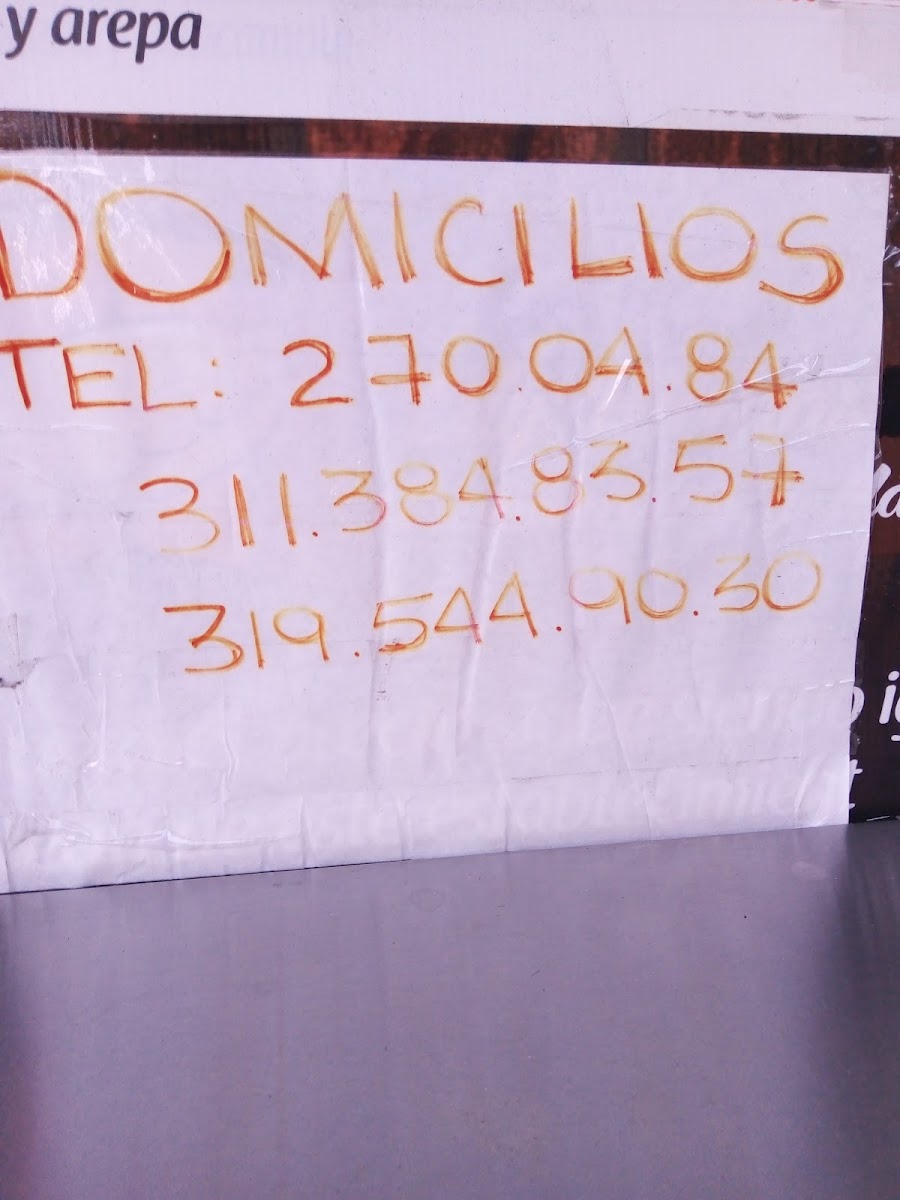 y arepa
DOMICILIOS
TEL: 270.04.84
311.384.83.57
319.544.90.30